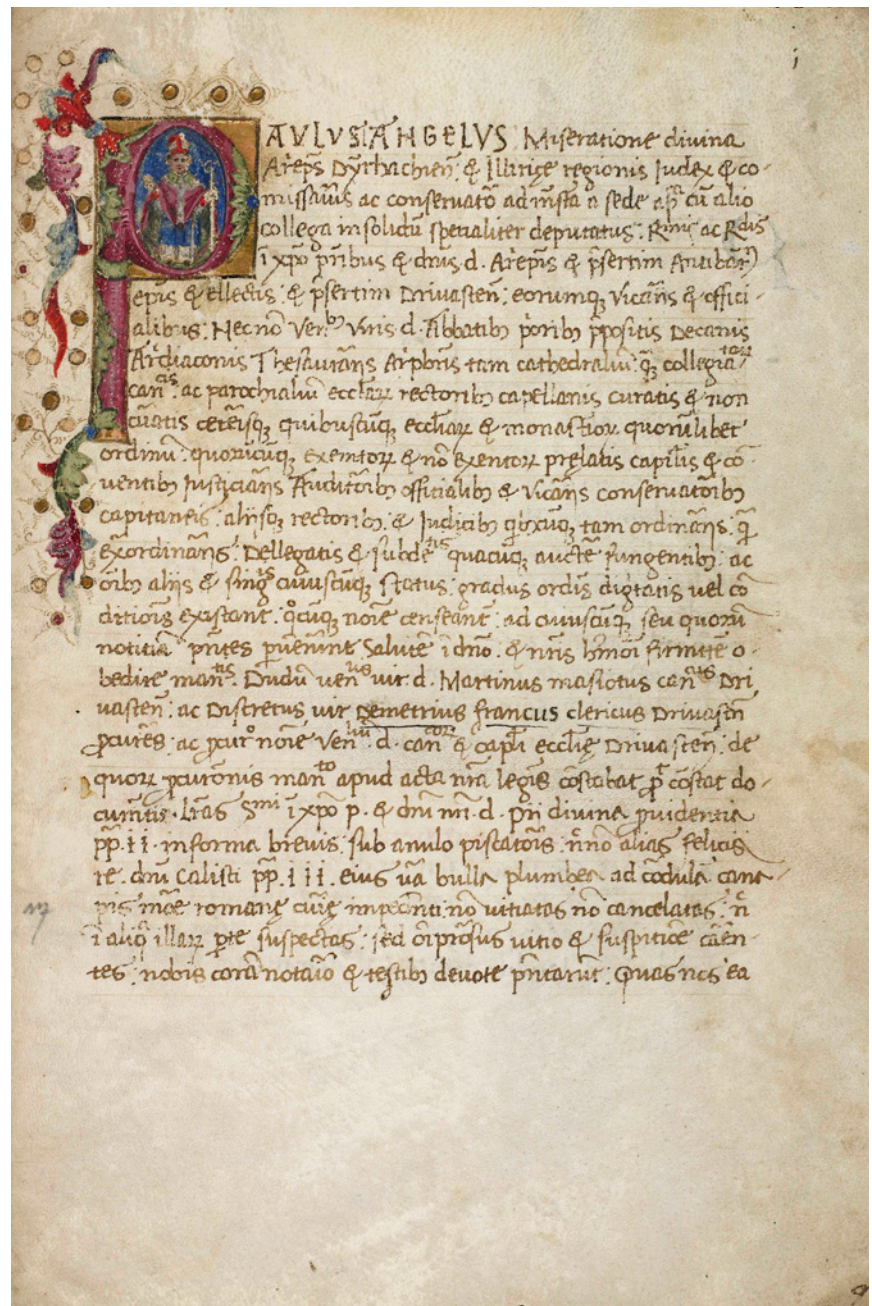 PAULUS ANGELUS Miseratione divina
Ar̄ep̄s Dȳrrhachien̄: & Illiricę regionis Judex & co-
missarius ac conservator̄ ad infr̄a a sede ap̄. cū alio
collega in solidū spetialiter deputatus: Rmis ac Rdis
ī xp̄o pr̄ibus & dn̄is .d. Ar̄ep̄is & p̄sertim Antibar̄.
ep̄is & ellectis: & p̄sertim Drivasten̄: eorumq; vicar̄iis & offici-
alibus: Nec nō Ven. Viris .d. Abbatib; p̄orib; p̄positis Decanis
Ar̄diaconis Thesaurar̄iis Ar̄pbris tam cathedraliū: q̄; collegia
can. ac parochialiū ecclar̄ rectorib; capellanis curatis & non
cūratis ceteisq; quibuscūq; eccliar̄ & monastior̄. quorūlibet
ordinū: quorūcūq; exemtor̄ & nō exentor̄ pręlatis capil̄is & cō-
ventib; Justiciar̄iis Auditorib; officialib; & vicar̄iis conservatorib;
capitaneis: aliisq; rectorib;: & Judicib; q̄b;cūq; tam ordinar̄iis: q̄
ex̄ordinar̄iis: Dellegatis & subde quacūq; auctē fungentib;: ac
oīb; aliis & sing. cuiuscūq; status: gradus ordīs dig̅tatis vel cō
ditiōis existant: qcūq; noīe censeant̄: ad cuiuscūq; seu quorū
notitiā pn̄tes pvenērint Salutē ī dn̄o. & nr̄is hmōi firmitē o-
bedire man. Dudū ven. vir .d. Martinus masiotus can. Dri
vasten̄: ac Discretus vir Demetrius francus clericus Drivastn̄
pcur̄es: ac pcur noīe ven. .d. can. & capli ecclię Drivasten̄: de
quor̄ pcurōnis man. apud acta nr̄a legis cōstabat p̄t cōstat do-
cumtis. Lr̄as Smi ī xp̄o p. & dn̄i nr̄i .d. pii divina providentia
pp. ii. in forma brevis: sub anulo piscatoris: nn̄o alias felicis
re. dn̄i Calisti pp. iii. eius va bulla plumbea ad cōdulā cana-
pis mōe romanę curię impēnti: nō vitiatas nō cancelatas: n̄
ī aliq illar̄ pte suspectas: sed oī prosus vitio & suspitiōe cāen-
tes: nobis corā notāio & testib; devote pn̄tarūt: Quas nos ea